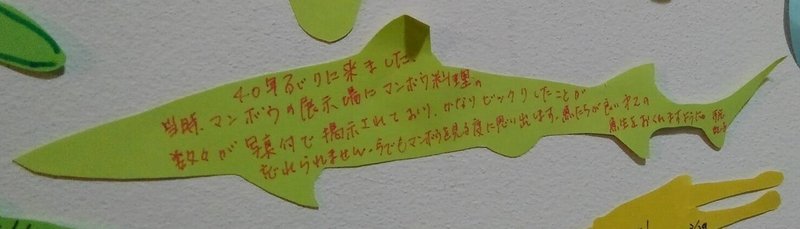 40年ぶりに来ました。
当時、マンボウの展示場にマンボウ料理の
数々が写真付で掲示されており、かなりビックリしたことが
忘れられません。今でもマンボウを見る度に思い出します。魚たちが良い才2の
魚生をおくれますように。